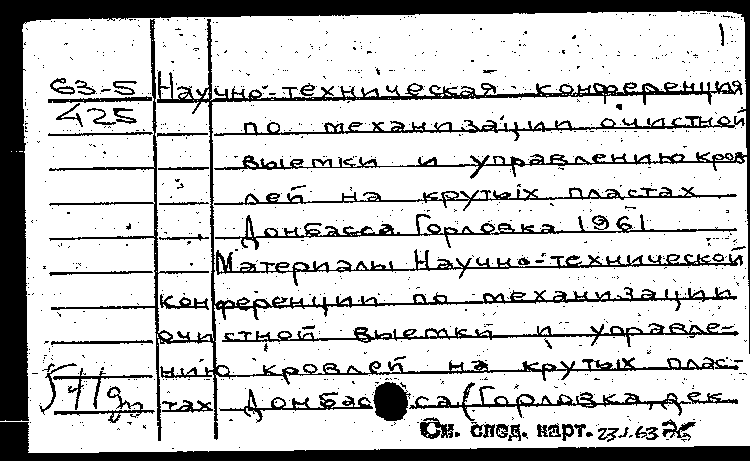 1
63-5 Научно-техническая конференция
425 по механизации очистной
выемки и управлению кров
лей на крутых пластах
Донбасса. Горловка 1961
Материалы Научно-технической
конференции по механизации
очистной выемки и управле-
нию кровлей на крутых плас-
тах Донбасса (Горловка, дек.
См. след. карт. 23.1.63